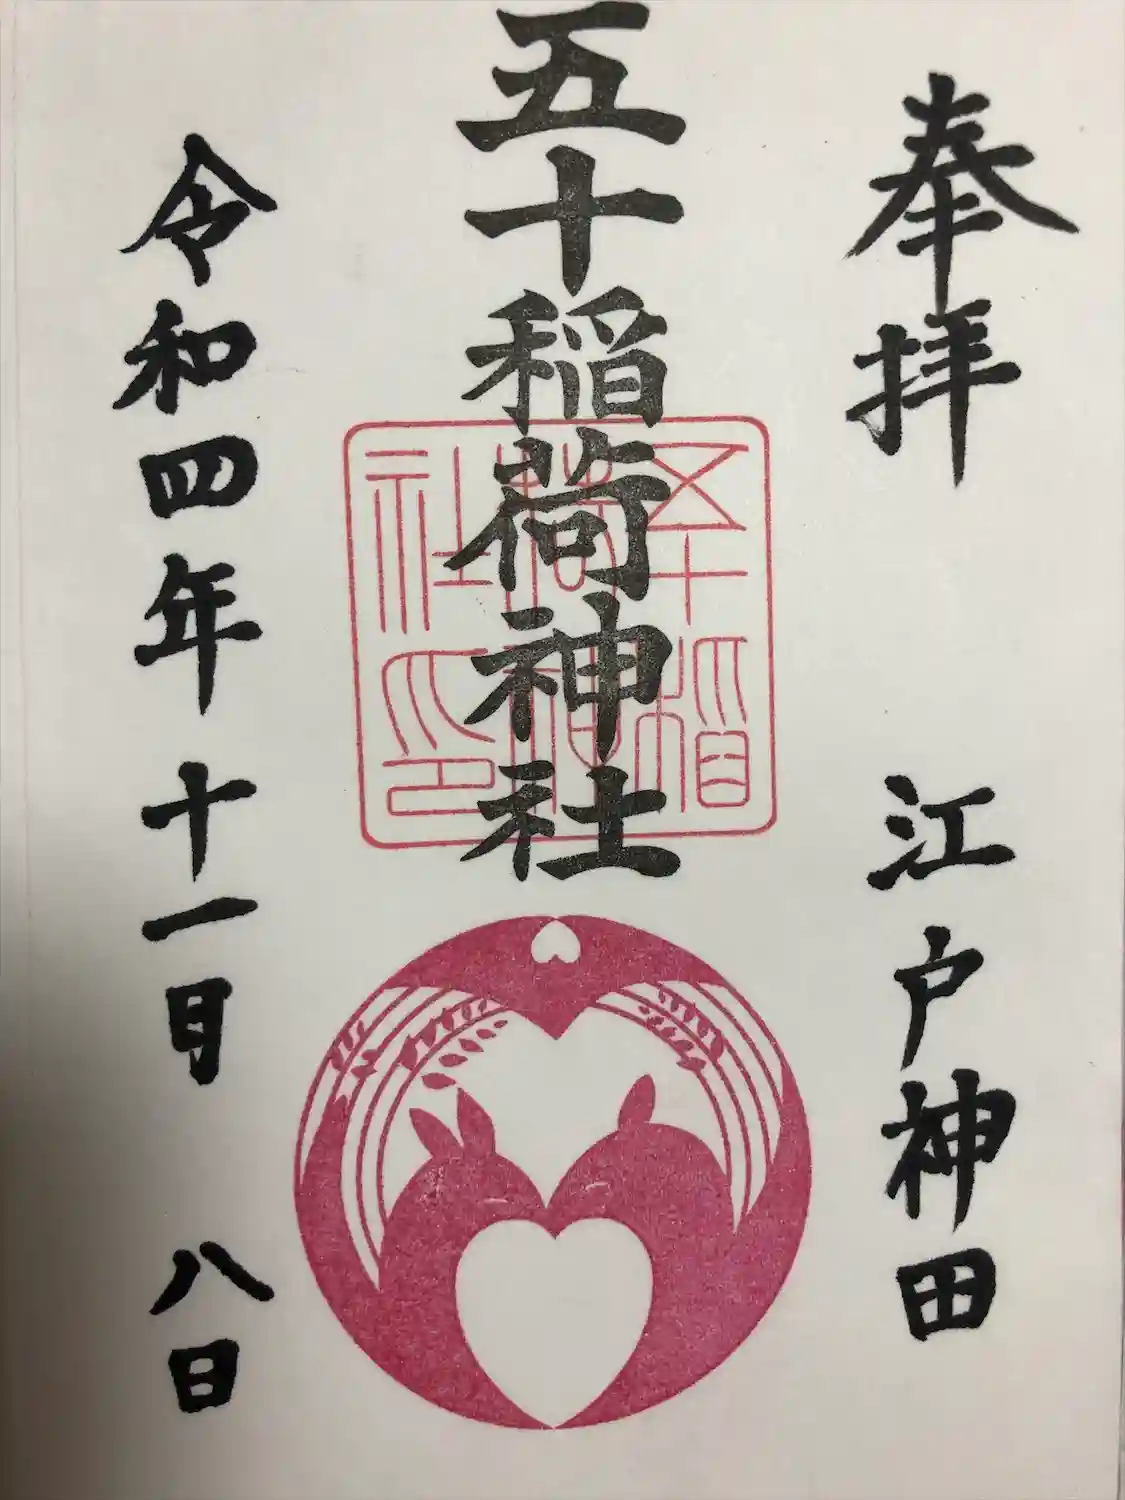 奉拝 江戸神田
五十稲荷神社
五十稲
荷神
社印
令和四年十一月八日